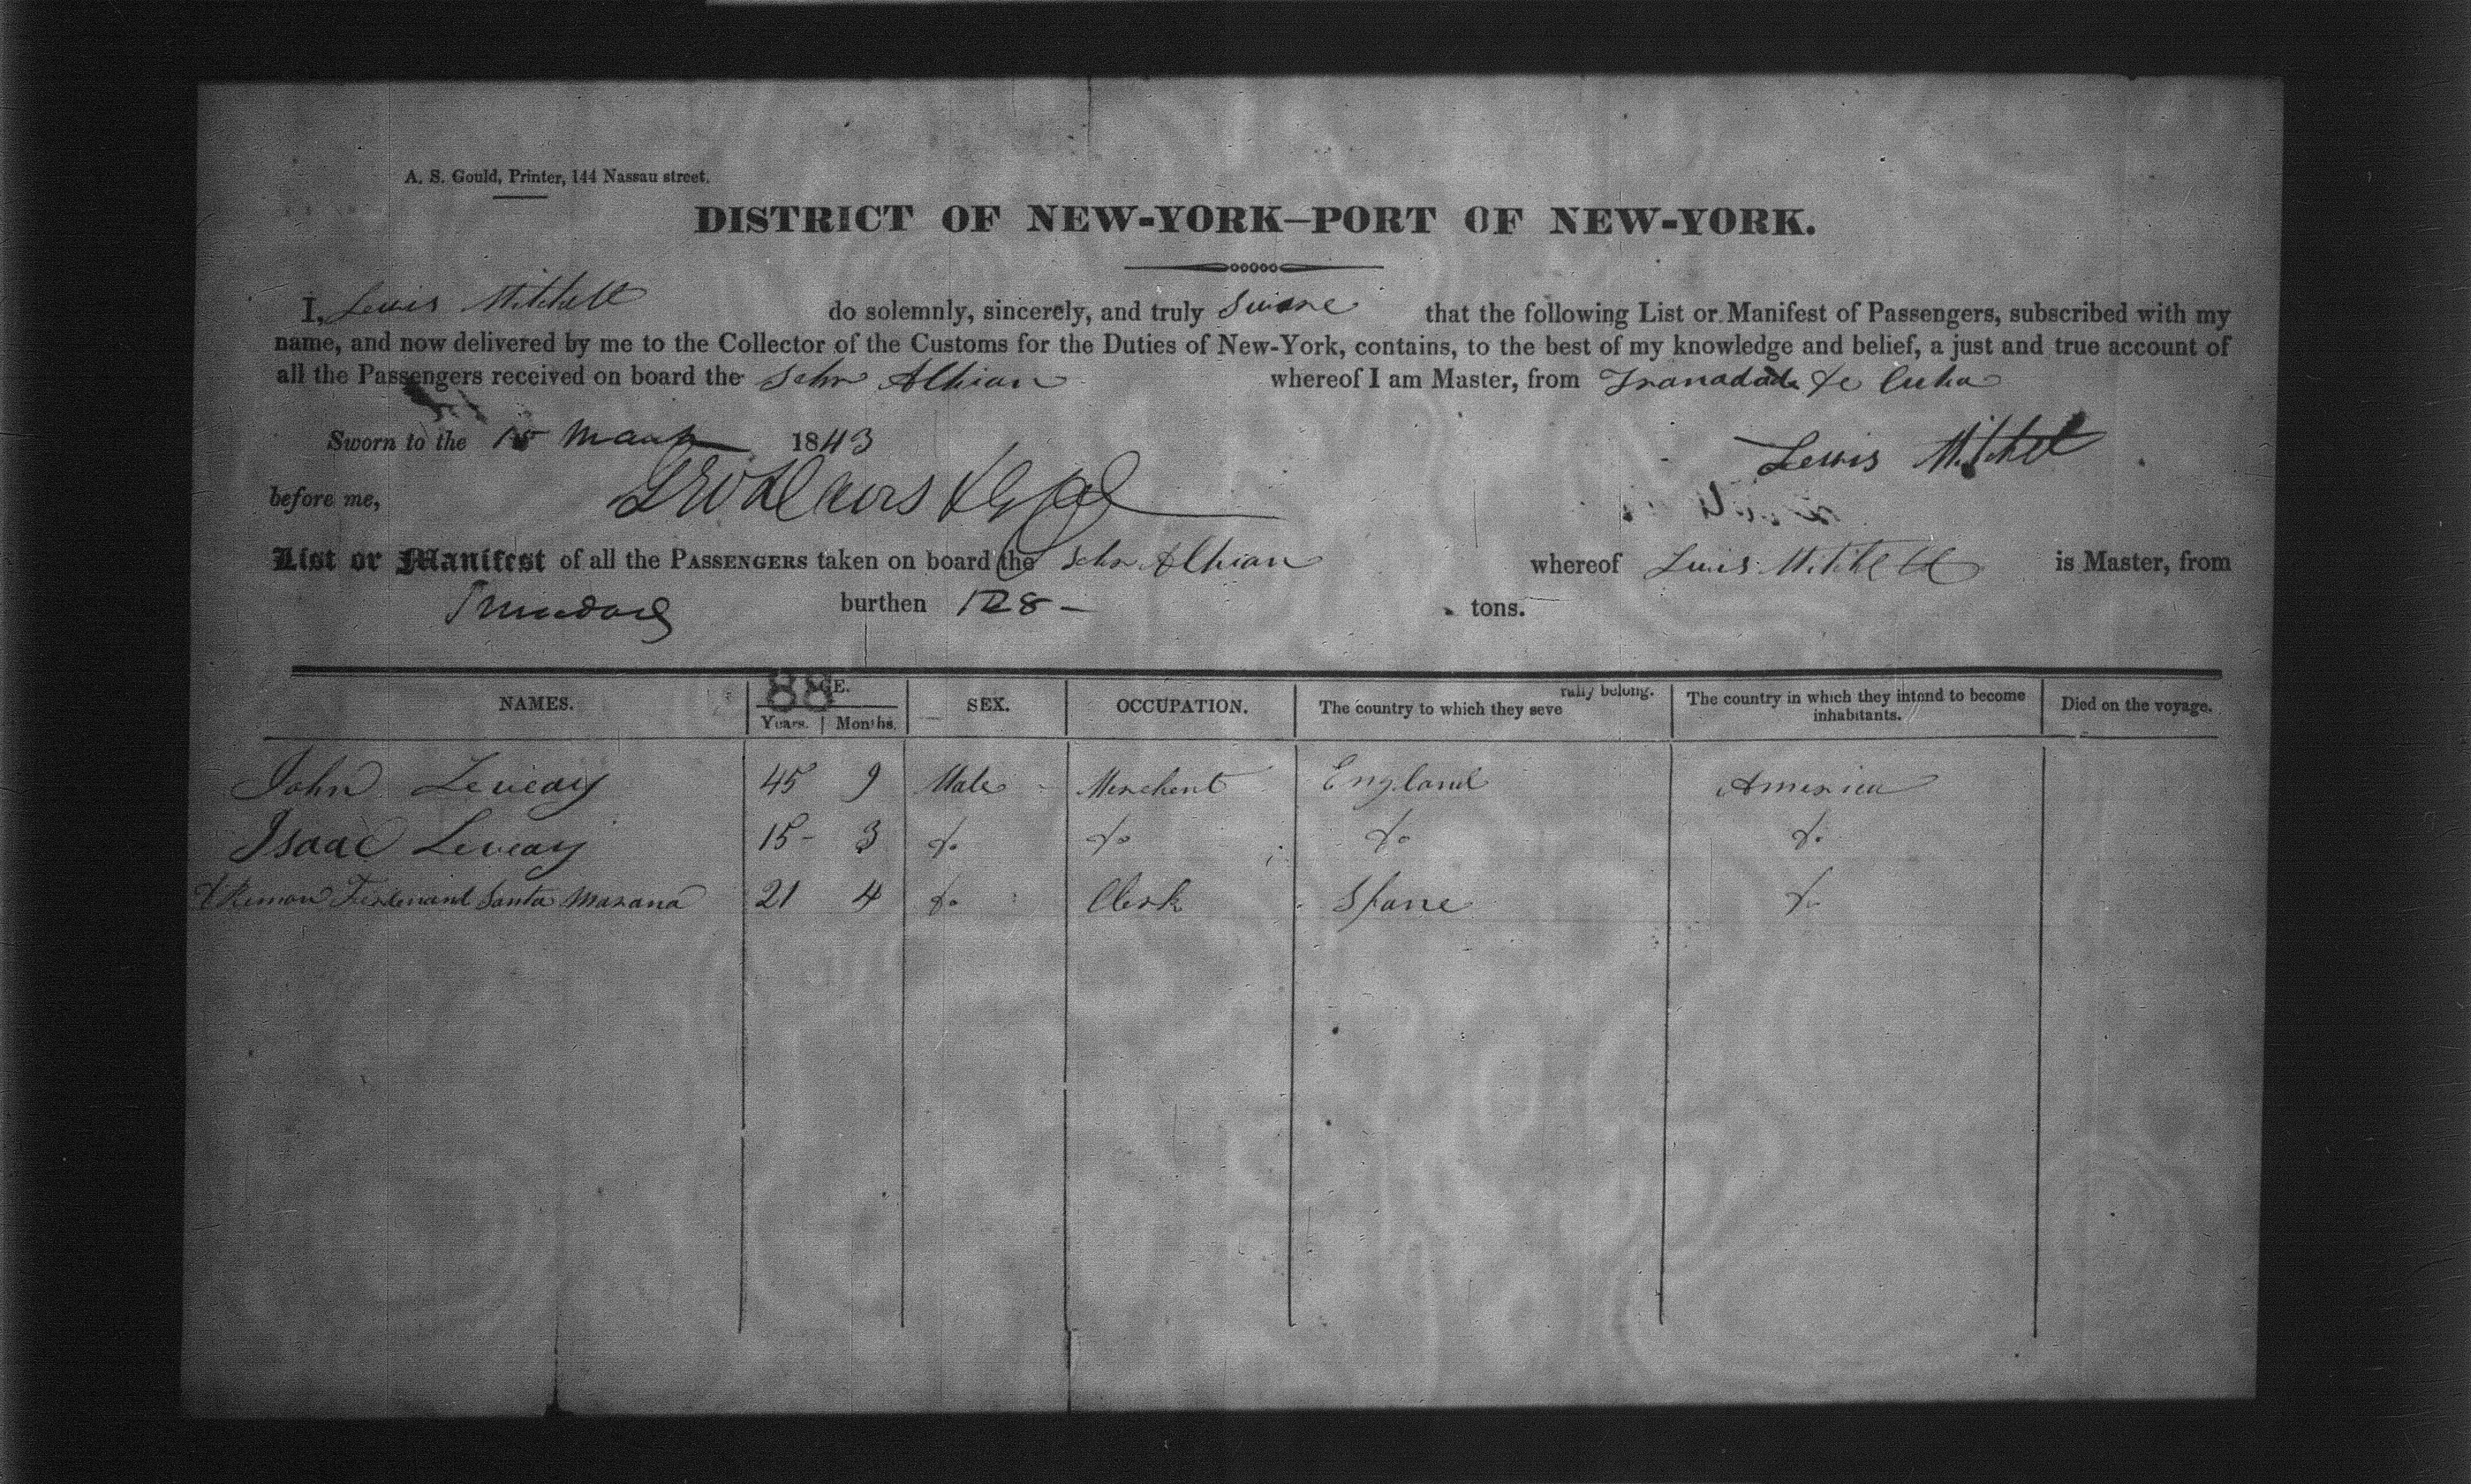 A. S. Gould, Printer, 144 Nassau street.
DISTRICT OF NEW-YORK—PORT OF NEW-YORK.
I, Lewis Mitchell do solemnly, sincerely, and truly Swore that the following List or Manifest of Passengers, subscribed with my
name, and now delivered by me to the Collector of the Customs for the Duties of New-York, contains, to the best of my knowledge and belief, a just and true account of
all the Passengers received on board the Schr Albian whereof I am Master, from Tranadada de Cuba
Sworn to the 15 March 1843 Lewis Mitchel
before me,
List or Manifest of all the PASSENGERS taken on board the Schr Albian whereof Lewis Mitchell is Master, from
Trinidad burthen 128 - tons.
88
NAMES. AGE. SEX. OCCUPATION. The country to which they severally belong. The country in which they intend to become inhabitants. Died on the voyage.
Years. Months.
John Leveay 45 9 Male Merchent England America
Isaac Leveay 15 - 3 do do do do
Remon Ferdenand Santa Marana 21 4 do Clerk Spane do